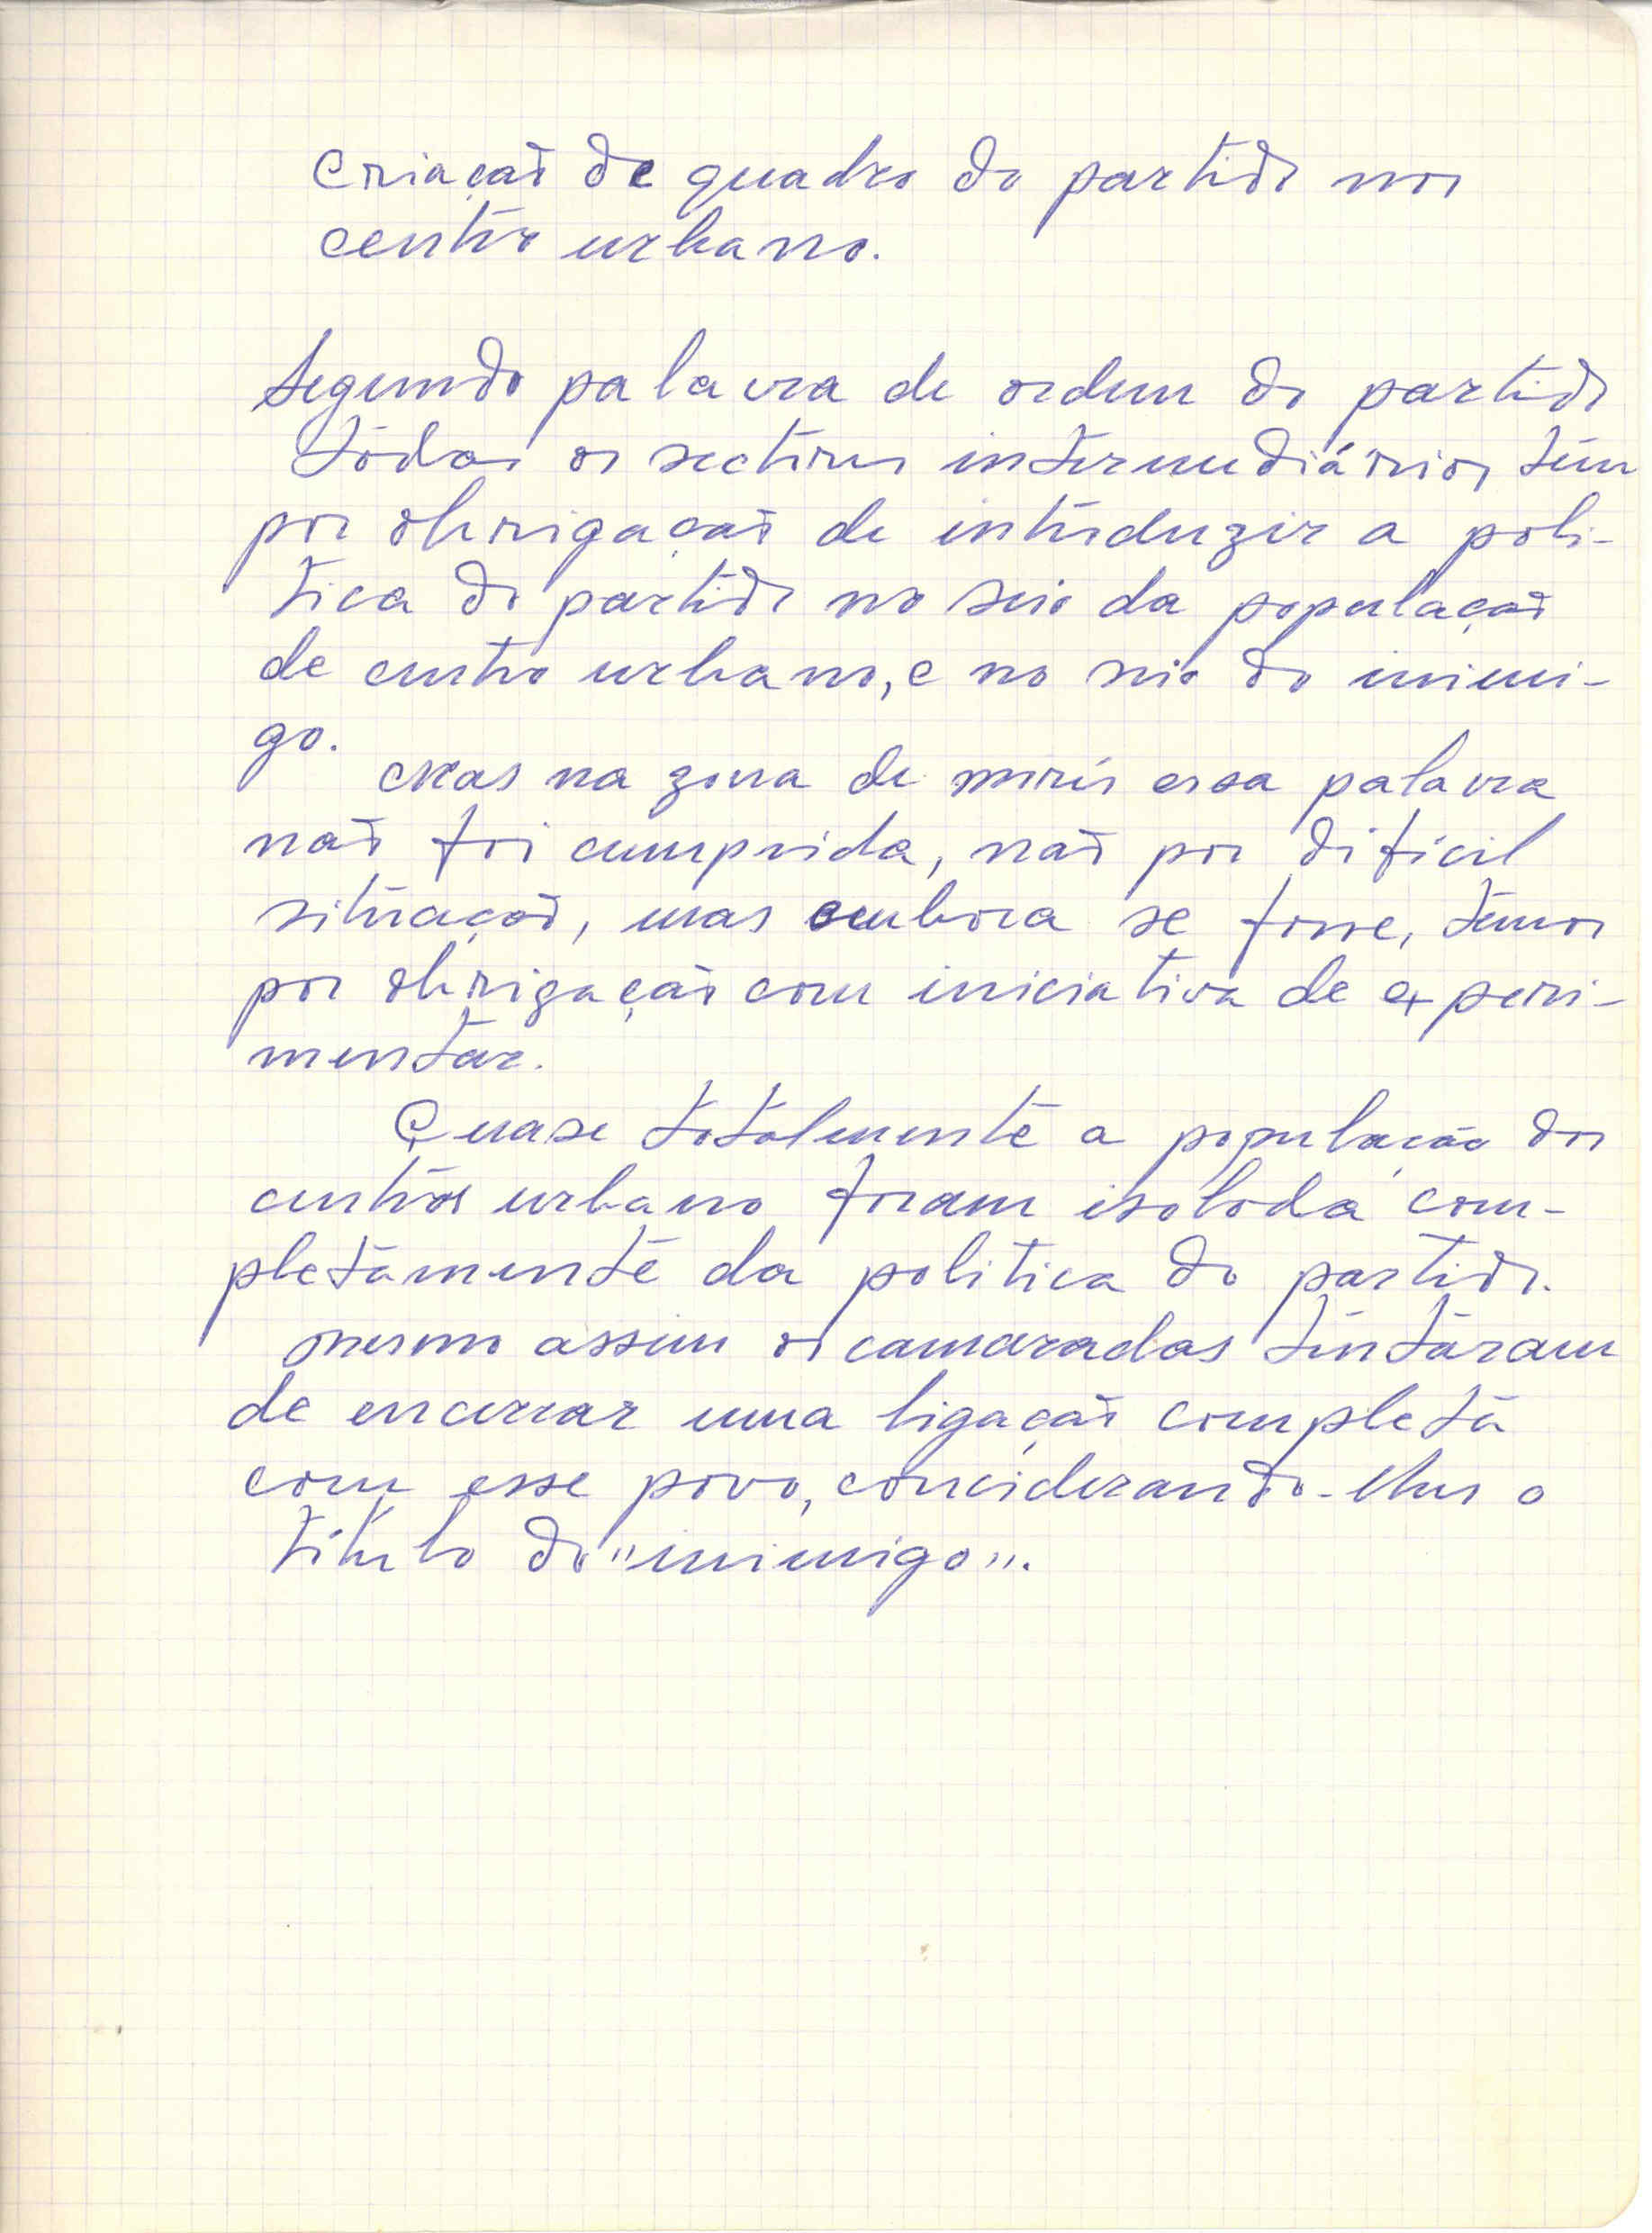 Criação de quadro do partido nos
centro urbano.
Segundo palavra de ordem do partido
tôdos os sectores intermediários têm
por obrigação de introduzir a poli-
tica do partido no seio da população
de centro urbano, e no seio do inimi-
go.
Mas na zona de morés essa palavra
não foi cumprida, não por difícil
situação, mas embora se fosse, temos
por obrigação com iniciativa de experi-
mentar.
Quase totalmente a população dos
centros urbano foram isoloda com-
pletamente da politica do partido.
mesmo assim os camaradas tentaram
de encerrar uma ligação completa
com esse povo, conciderando-lhes o
título do "inimigo".